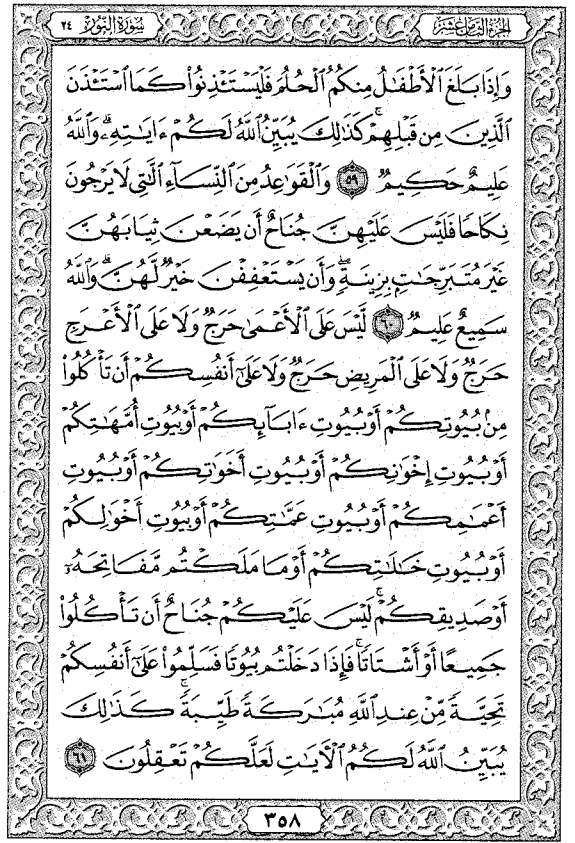 سُورَةُ النُّورِ ٢٤
الجُزْءُ الثَّامِنَ عَشَرَ
وَإِذَا بَلَغَ ٱلْأَطْفَـٰلُ مِنكُمُ ٱلْحُلُمَ فَلْيَسْتَـْٔذِنُوا۟ كَمَا ٱسْتَـْٔذَنَ
ٱلَّذِينَ مِن قَبْلِهِمْ ۚ كَذَٰلِكَ يُبَيِّنُ ٱللَّهُ لَكُمْ ءَايَـٰتِهِۦ ۗ وَٱللَّهُ
عَلِيمٌ حَكِيمٌ ٥٩ وَٱلْقَوَٰعِدُ مِنَ ٱلنِّسَآءِ ٱلَّـٰتِى لَا يَرْجُونَ
نِكَاحًا فَلَيْسَ عَلَيْهِنَّ جُنَاحٌ أَن يَضَعْنَ ثِيَابَهُنَّ
غَيْرَ مُتَبَرِّجَـٰتٍۭ بِزِينَةٍ ۖ وَأَن يَسْتَعْفِفْنَ خَيْرٌ لَّهُنَّ ۗ وَٱللَّهُ
سَمِيعٌ عَلِيمٌ ٦٠ لَّيْسَ عَلَى ٱلْأَعْمَىٰ حَرَجٌ وَلَا عَلَى ٱلْأَعْرَجِ
حَرَجٌ وَلَا عَلَى ٱلْمَرِيضِ حَرَجٌ وَلَا عَلَىٰٓ أَنفُسِكُمْ أَن تَأْكُلُوا۟
مِنۢ بُيُوتِكُمْ أَوْ بُيُوتِ ءَابَآئِكُمْ أَوْ بُيُوتِ أُمَّهَـٰتِكُمْ
أَوْ بُيُوتِ إِخْوَٰنِكُمْ أَوْ بُيُوتِ أَخَوَٰتِكُمْ أَوْ بُيُوتِ
أَعْمَـٰمِكُمْ أَوْ بُيُوتِ عَمَّـٰتِكُمْ أَوْ بُيُوتِ أَخْوَٰلِكُمْ
أَوْ بُيُوتِ خَـٰلَـٰتِكُمْ أَوْ مَا مَلَكْتُم مَّفَاتِحَهُۥٓ
أَوْ صَدِيقِكُمْ ۚ لَيْسَ عَلَيْكُمْ جُنَاحٌ أَن تَأْكُلُوا۟
جَمِيعًا أَوْ أَشْتَاتًا ۚ فَإِذَا دَخَلْتُم بُيُوتًا فَسَلِّمُوا۟ عَلَىٰٓ أَنفُسِكُمْ
تَحِيَّةً مِّنْ عِندِ ٱللَّهِ مُبَـٰرَكَةً طَيِّبَةً ۚ كَذَٰلِكَ
يُبَيِّنُ ٱللَّهُ لَكُمُ ٱلْـَٔايَـٰتِ لَعَلَّكُمْ تَعْقِلُونَ ٦١
٣٥٨